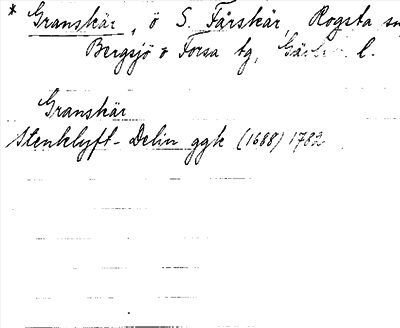 * Granskär, ö S. Fårskär, Rogsta sn
Bergsjö o Forsa tg, l.
Granskär
Stenklyft-Delin ggk (1688) 1782